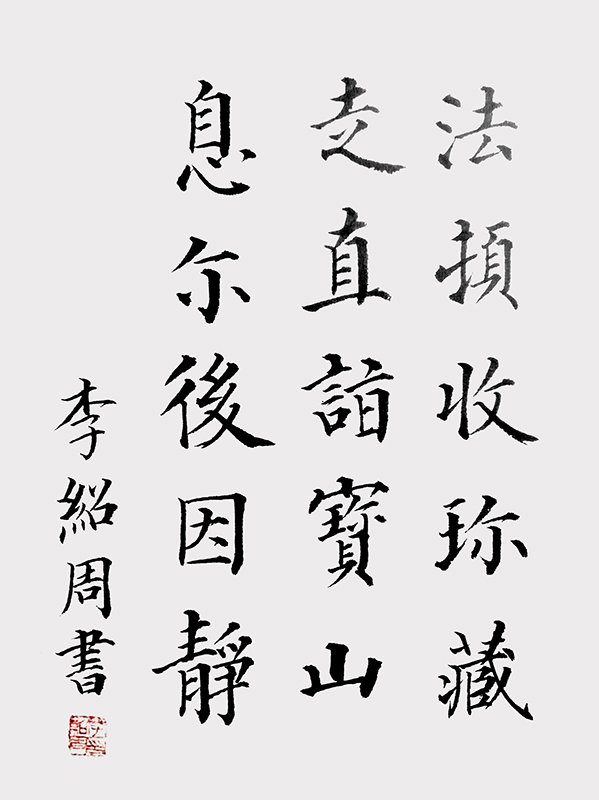 法收珎藏
走直詣寶山
息尓後因靜
李紹周書